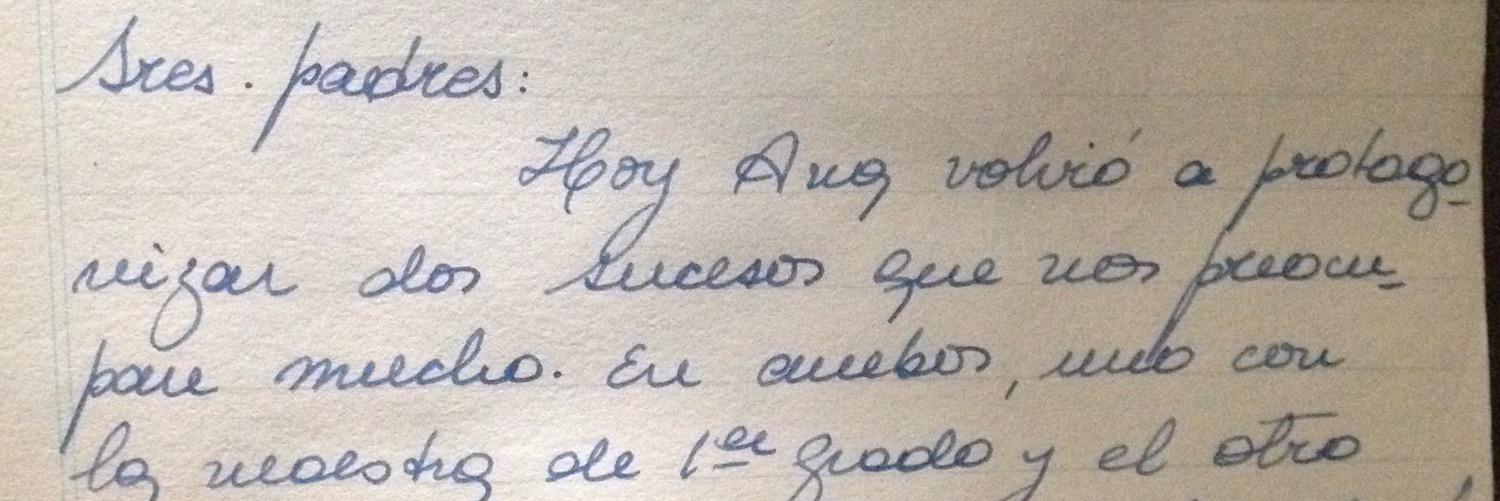 Sres. padres:
Hoy Ana volvió a protago-
nizar dos sucesos que nos preocu-
pan mucho. En ambos, uno con
la maestra de 1er grado y el otro